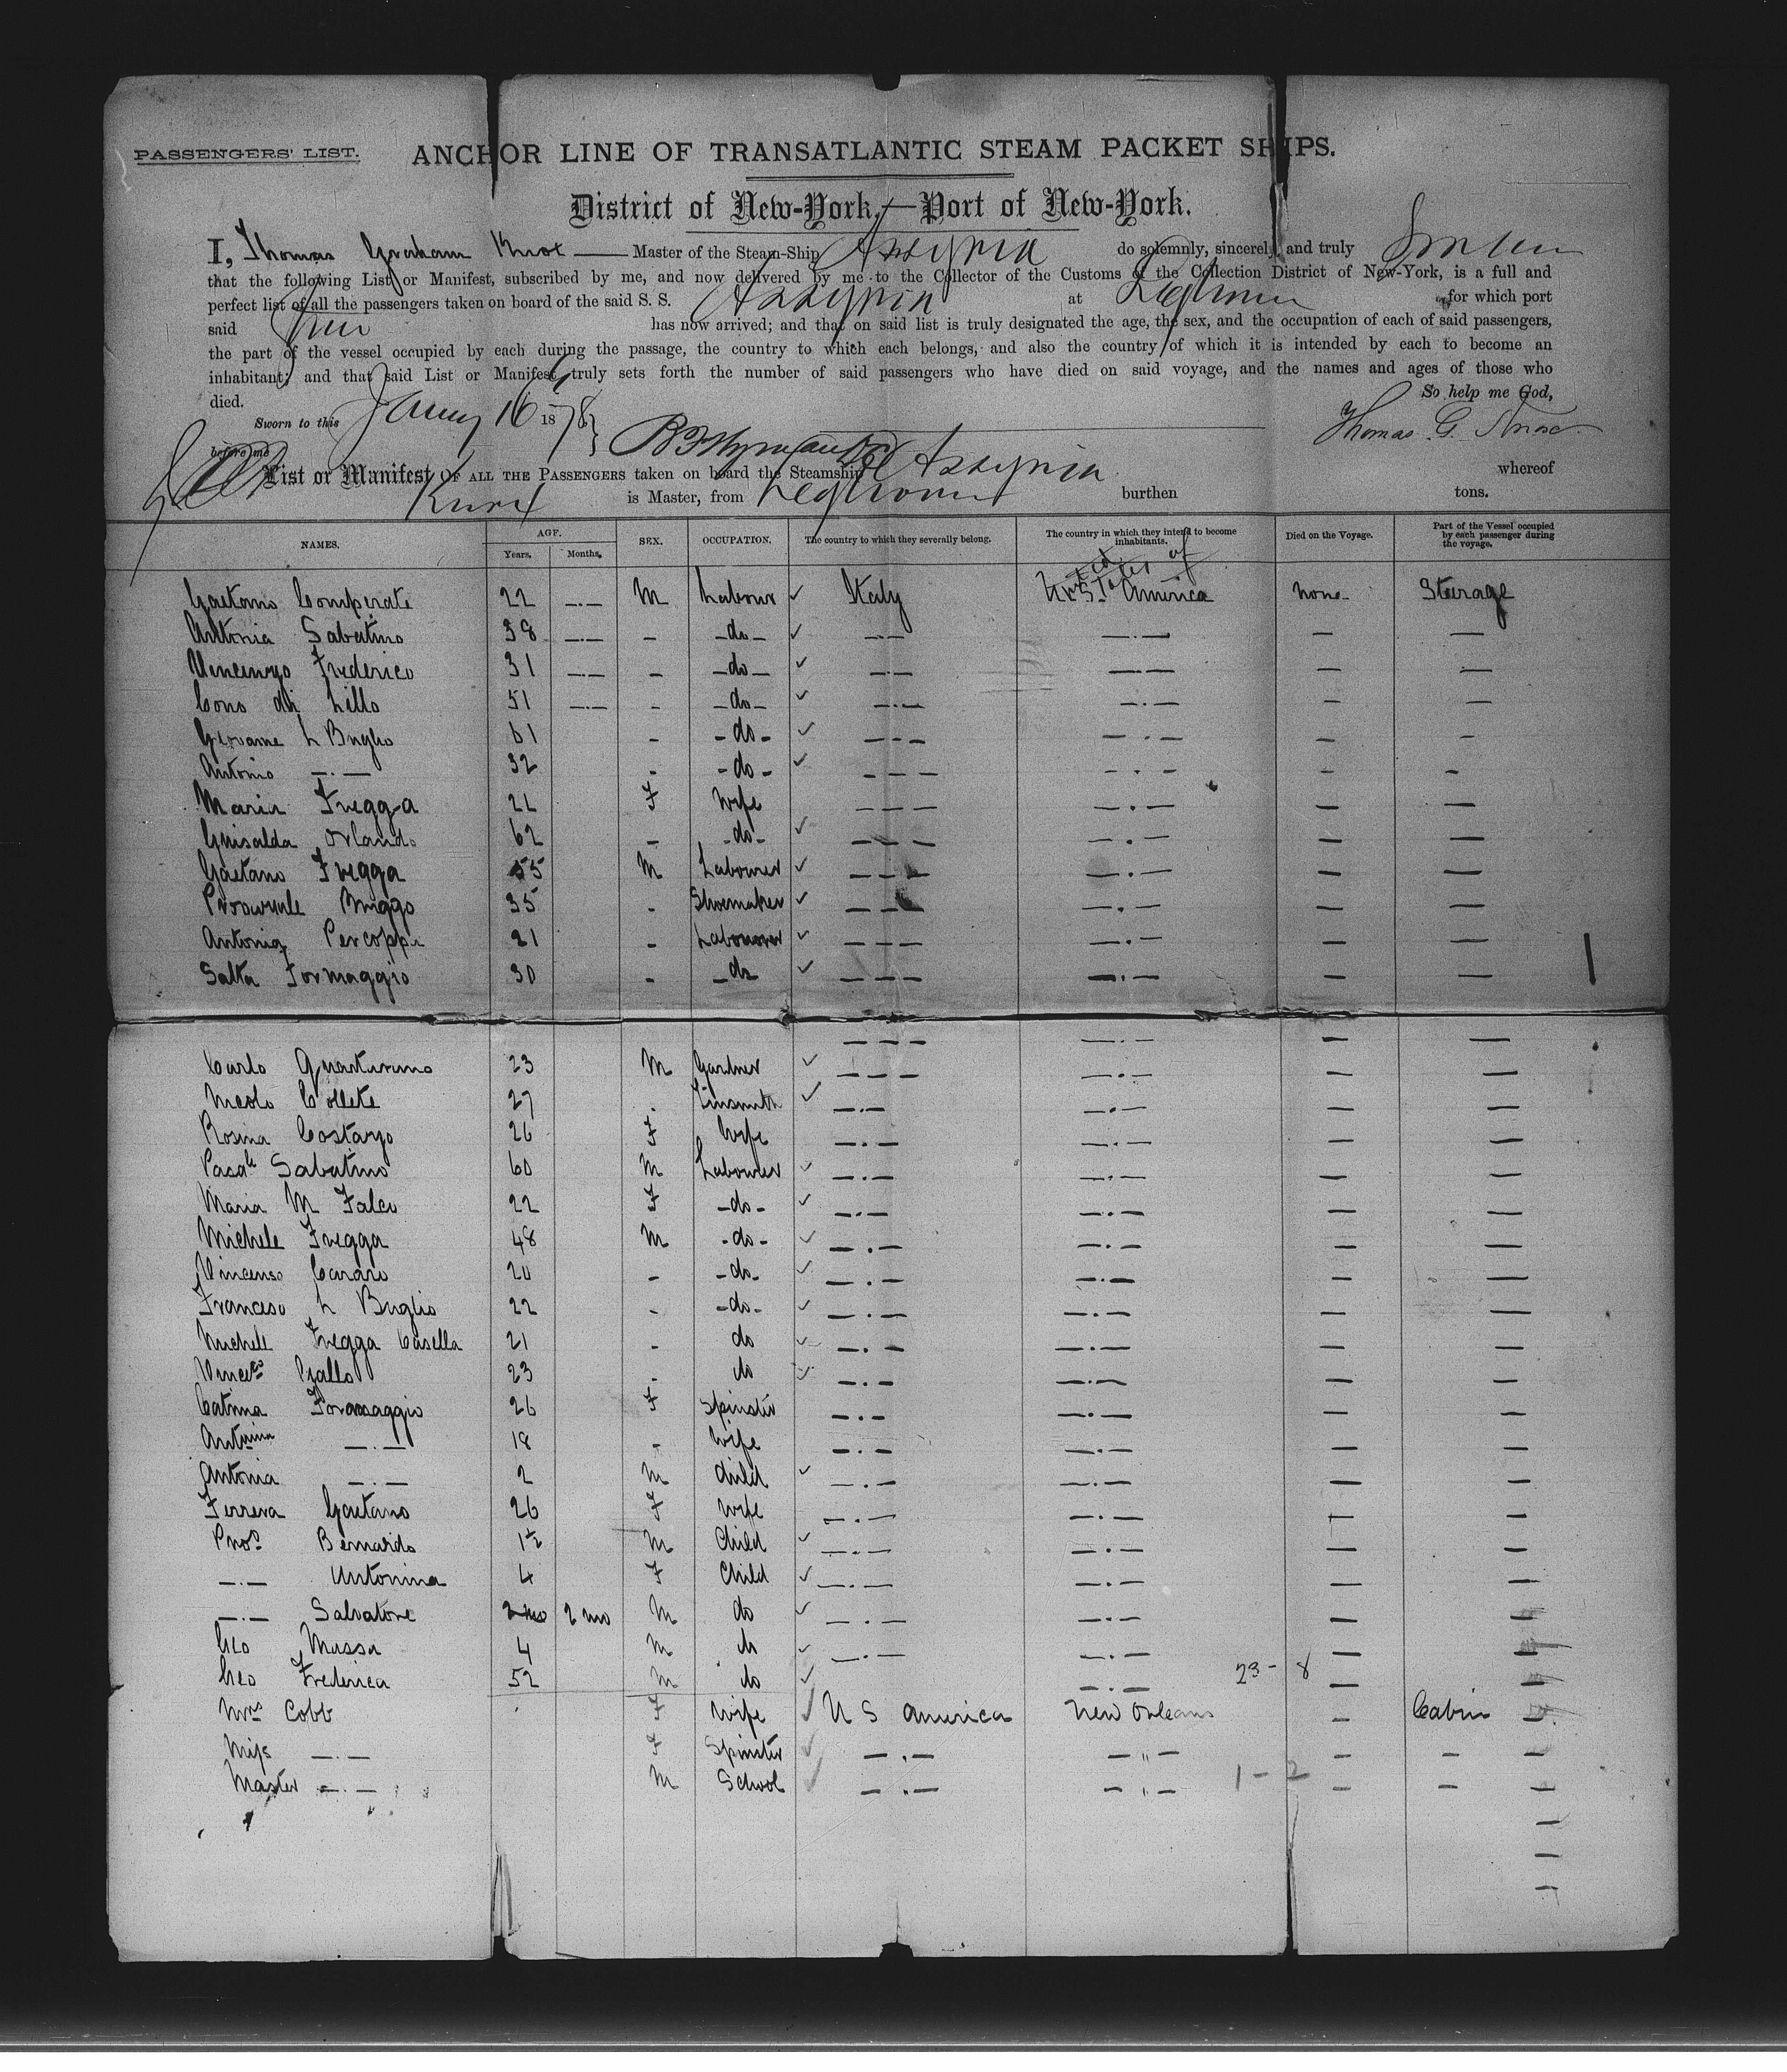 PASSENGERS' LIST.
ANCHOR LINE OF TRANSATLANTIC STEAM PACKET SHIPS.
District of New-York,—Port of New-York.
I, Thomas Graham Knox — Master of the Steam-Ship Assyria do solemnly, sincerely and truly Swear
that the following List or Manifest, subscribed by me, and now delivered by me to the Collector of the Customs of the Collection District of New-York, is a full and
perfect list of all the passengers taken on board of the said S. S. Assyria at Leghorn for which port
said has now arrived; and that on said list is truly designated the age, the sex, and the occupation of each of said passengers,
the part of the vessel occupied by each during the passage, the country to which each belongs, and also the country of which it is intended by each to become an
inhabitant; and that said List or Manifest truly sets forth the number of said passengers who have died on said voyage, and the names and ages of those who
died. So help me God,
Sworn to this Jany 16 1878 Thomas G. Knox
before me
List or Manifest OF ALL THE PASSENGERS taken on board the Steamship Assyria whereof
Knox is Master, from Leghorn burthen tons.
NAMES. AGE. Years. Months. SEX. OCCUPATION. The country to which they severally belong. The country in which they intend to become inhabitants. Died on the Voyage. Part of the Vessel occupied by each passenger during the voyage.
United States of
Gaetano Comperate 22 —.— M Labour ✓ Italy America None Sterage
Antonia Sabatino 38 —.— - -do- ✓ —.— —.— — —
Vencenzo Frederico 31 —.— - -do- ✓ —.— —.— — —
Cono di Lillo 51 —.— - -do- ✓ —.— —.— — —
Giovanne L Buglio 61 - -do- ✓ — — — —.— — -
Antonio —.— 32 - -do- ✓ — — — —.— — -
Maria Fregga 22 F Wife — — — —.— — —
Guisalda Orlando 62 - -do- ✓ — — — —.— — —
Gaetano Fregga 55 M Labourer ✓ — — — —.— — —
Briggo 35 - Shoemaker ✓ — — — —.— — —
Antonia Percoppi 21 - Labourer ✓ — — — —.— — —
Salta Formaggio 30 - -do ✓ — — — —.— — —
Carlo Quarturano 23 M Gardner ✓ — — — —.— — —
Nicolo Collete 27 - Tinsmith ✓ —.— —.— — —
Rosina Costanzo 26 F Wife —.— —.— — —
Pasale Sabatino 60 M Labourer ✓ —.— —.— — —
Maria M Falco 22 F -do- ✓ —.— —.— — —
Michele Fregga 48 M -do- ✓ —.— —.— — —
Vincenso Cararo 20 - -do- ✓ —.— —.— — —
Franceso L Buglio 22 - -do- ✓ —.— —.— — —
Michele Fregga Casella 21 - do ✓ —.— —.— — —
Vincezo Gallo 23 - do ✓ —.— —.— — —
Catrina Formaggio 26 F Spinster —.— —.— — —
Antonina —.— 18 - Wife —.— —.— — —
Antonia —.— 2 M Child ✓ —.— —.— — —
Ferrera Gaetano 26 F Wife —.— —.— — —
Bernardo 1½ M Child ✓ —.— —.— — —
—.— Antonina 4 F Child ✓ —.— —.— — —
—.— Salvatore 2 mo M do ✓ —.— —.— — —
Geo Massa 4 M do ✓ —.— —.— — —
Geo Frederica 52 M do ✓ —.— 23 - 8 — —
Mrs Cobb F Wife ✓ U S America New Orleans — Cabin —
Miss —.— F Spinster ✓ —.— —"— — — —
Master —.— M School ✓ —.— —"— 1 - 2 — — —